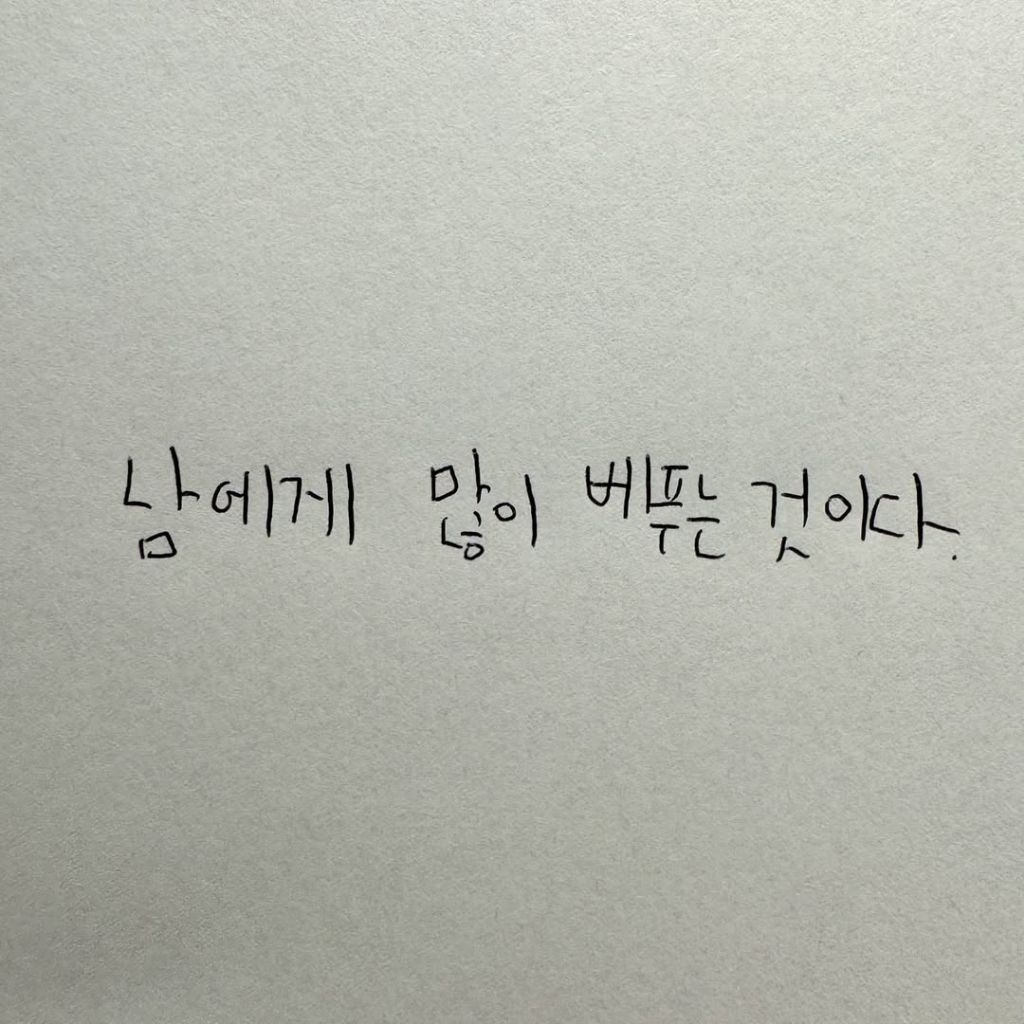 남에게 많이 베푸는 것이다.